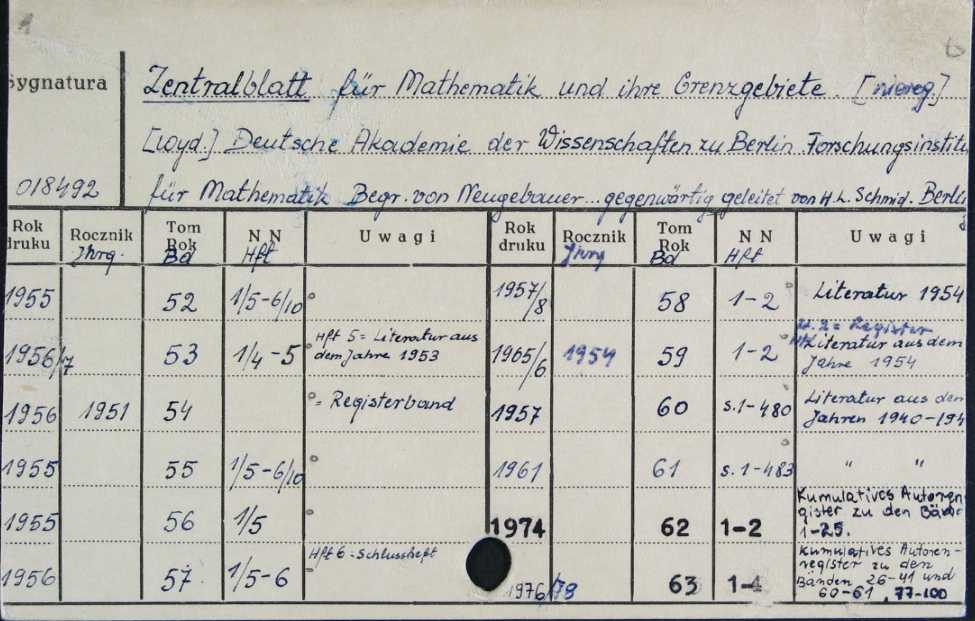 Sygnatura
Zentralblatt für Mathematik und ihre Grenzgebiete. [niereg]
[Wyd.] Deutsche Akademie der Wissenschaften zu Berlin Forschungsinstitu
018492 für Mathematik Begr. von Neugebauer... gegenwärtig geleitet von H. L. Schmid. Berli
Rok druku Rocznik Jhrg. Tom Rok Bd NN Hft Uwagi Rok druku Rocznik Jhrg Tom Rok Bd NN Hft Uwagi
1955 52 1/5-6/10 1957/8 58 1-2 Literatur 1954
1956/7 53 1/4-5 Hft 5 = Literatur aus dem Jahre 1953 1965/6 1954 59 1-2 H. 2 = Register Literatur aus dem Jahre 1954
1956 1951 54 = Registerband 1957 60 s. 1-480 Literatur aus den Jahren 1940-194
1955 55 1/5-6/10 1961 61 s. 1-483 " "
1955 56 1/5 1974 62 1-2 Kumulatives Autoren gister zu den Bänd 1-25.
1956 57 1/5-6 Hft 6 = Schlussheft 1976/78 63 1-4 Kumulatives Autoren-register zu den Bänden 26-41 und 60-61, 77-100